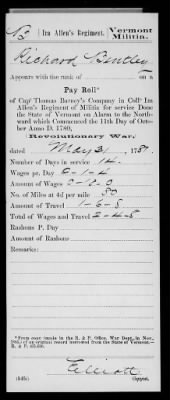 B | Ira Allen's Regiment. | Vermont Militia.
Richard Bentley
Appears with the rank of on a
Pay Roll*
of Capt Thomas Barney's Company in Coll Ira
Allen's Regiment of Militia for service Done
the State of Vermont on Alarm to the North-
ward which Commenced the 11th Day of Oct-
ober Anno D. 1780,
Revolutionary War,
dated May 31, 1781
Number of Days in service 14
Wages pr. Day 0-1-4
Amount of Wages 0-18-0
No. of Miles at 4d per mile 80
Amount of Travel 1-6-8
Total of Wages and Travel 2-4-8
Rashons P. Day
Amount of Rashons
Remarks:
*From copy (made in the R. & P. Office, War Dept., in Nov.,
of an original record borrowed from the State of Vermont.—
R. & P.
Elliott
(545) Copyist.